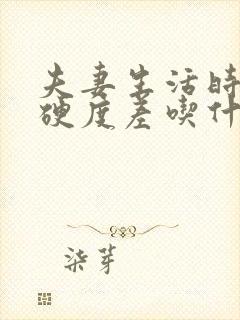 夫妻生活时
硬度差喫什
柒芽